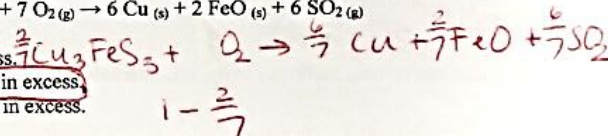 + 7 O₂ (g) → 6 Cu (s) + 2 FeO (s) + 6 SO₂ (g)
ss. 2/7 Cu₃FeS₃ + O₂ → 6/7 Cu + 2/7 FeO + 6/7 SO₂
in excess.
in excess.
1 - 2/7